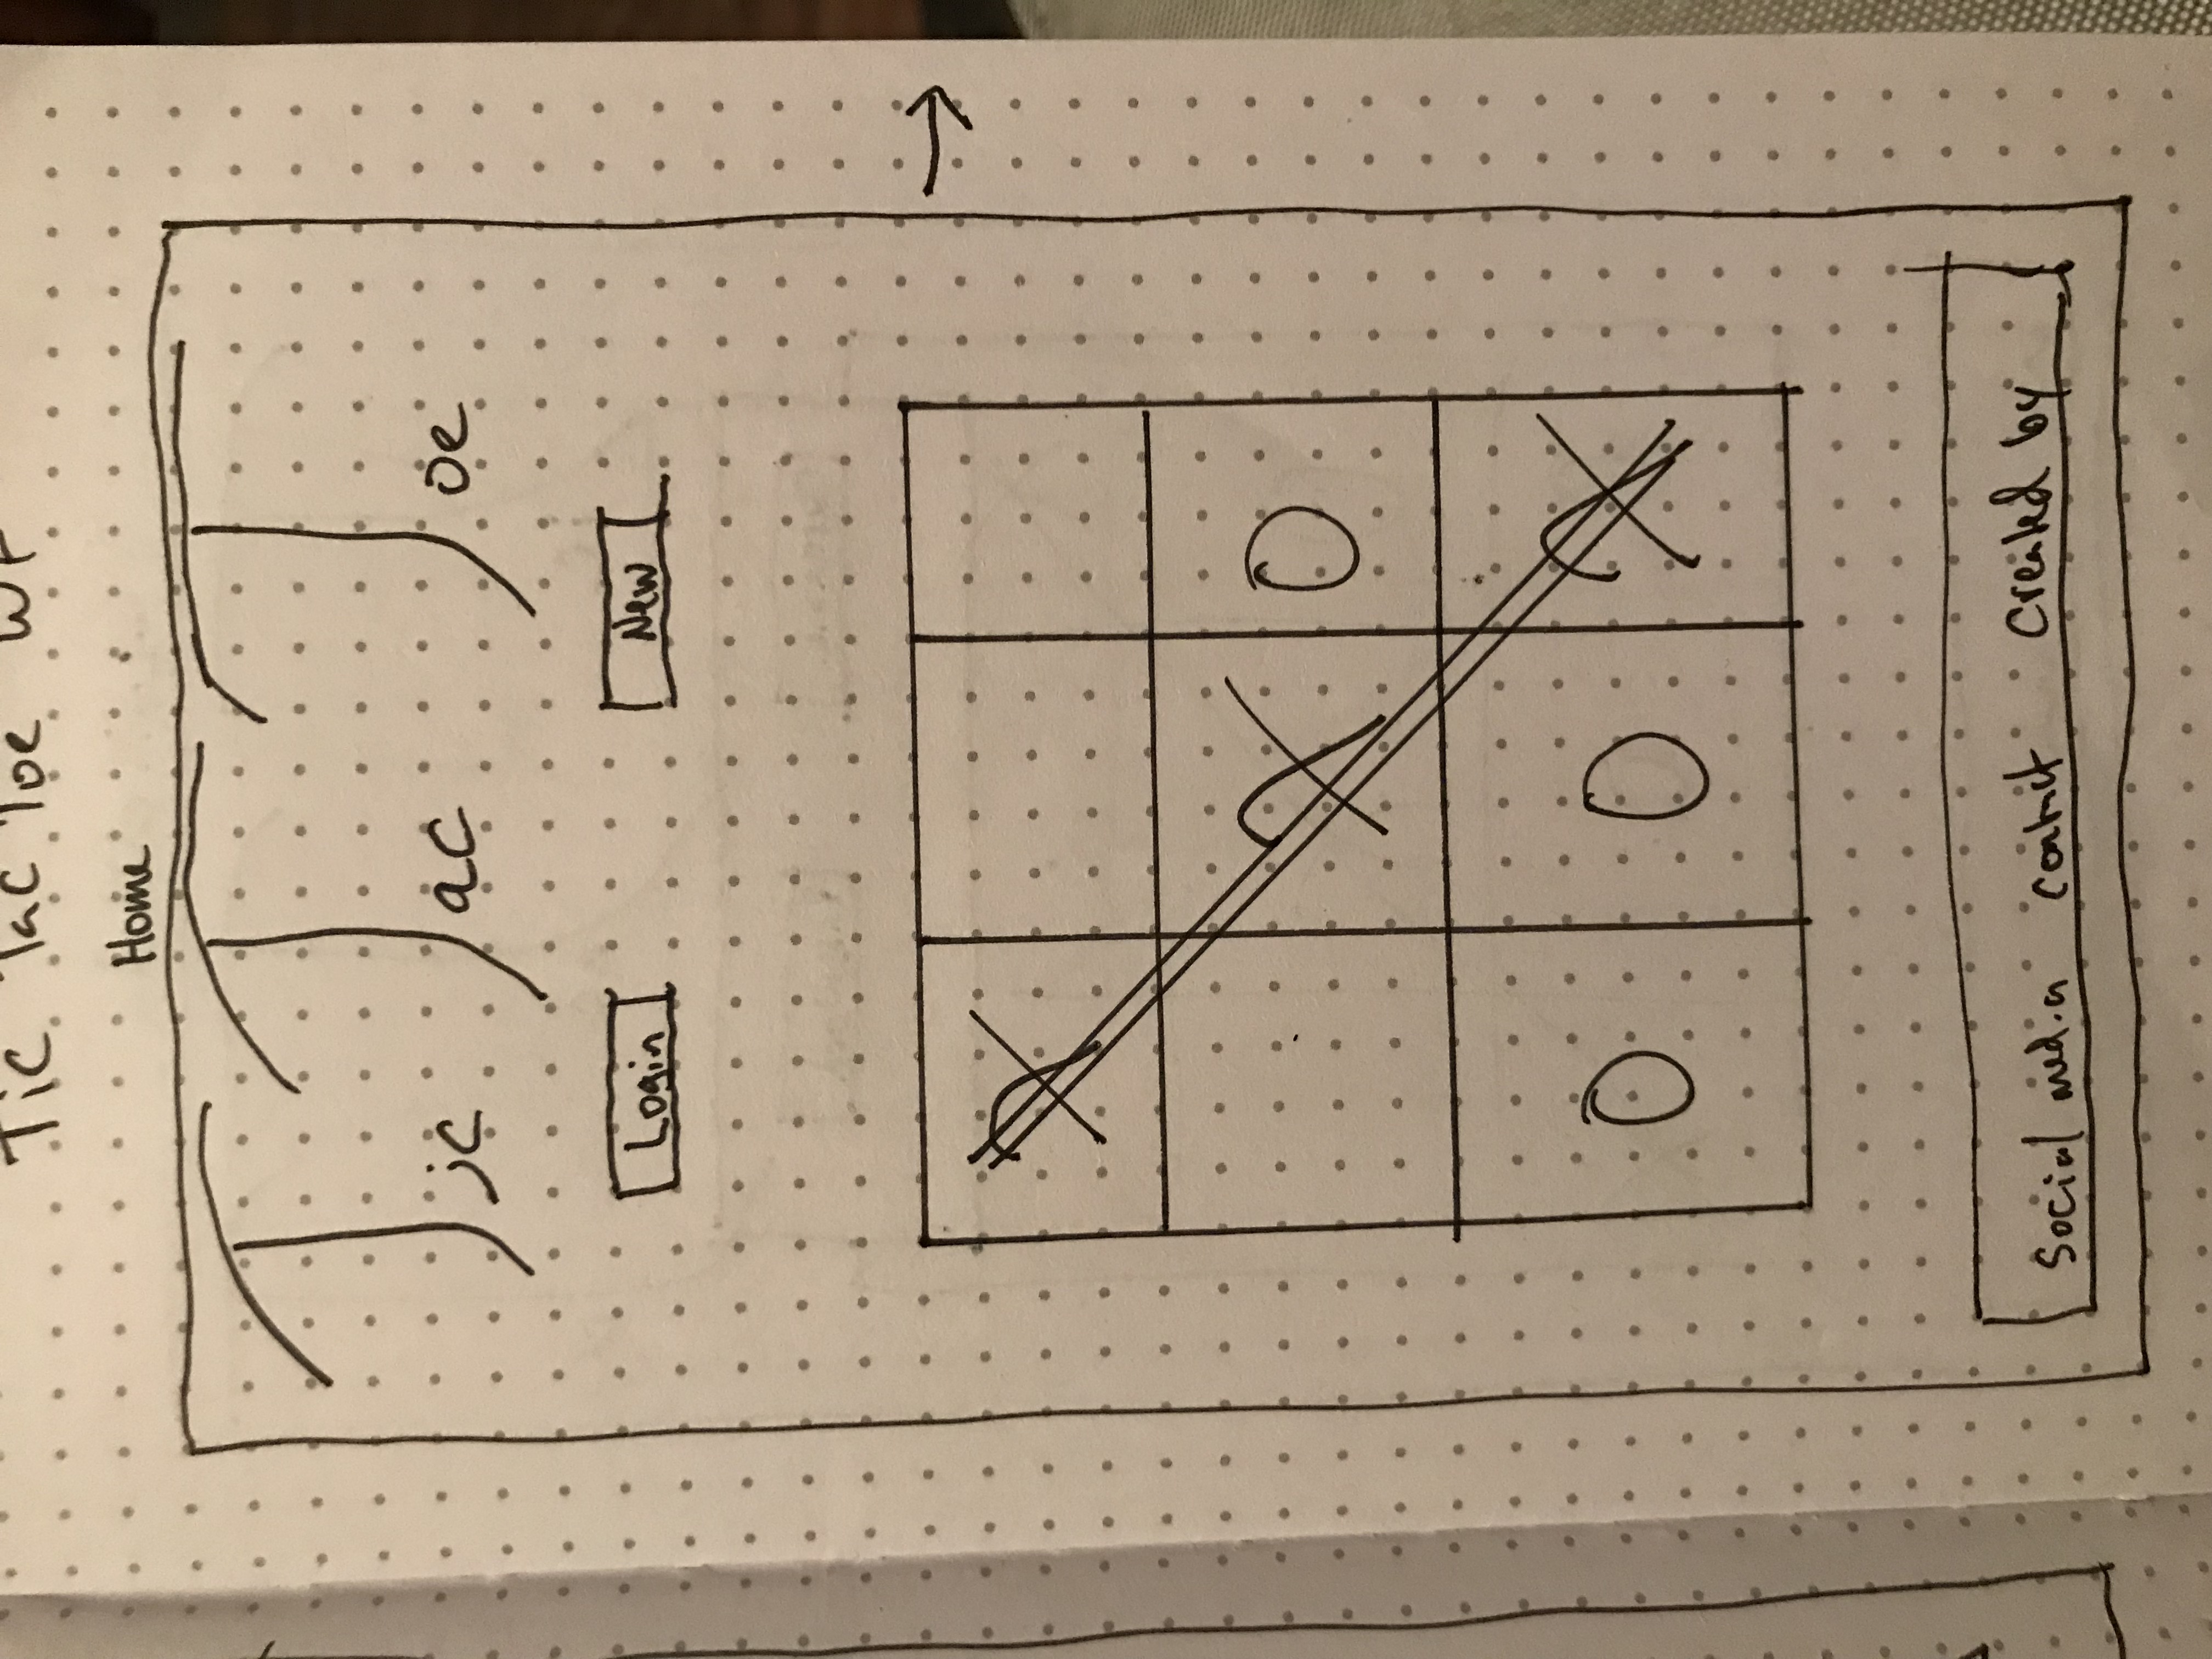 Tic Tac Toe WF
Home
Tic Tac Toe
Login New
X
X O
O O X
Social media contact Created by